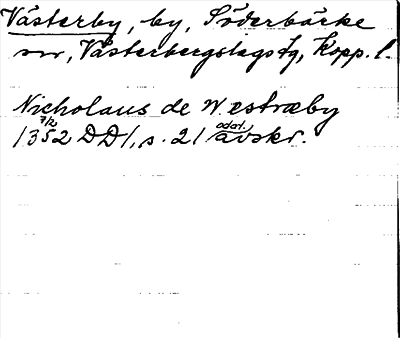 Västerby, by, Söderbärke
sn, Västerbergslags tg, Kopp. l.
Nicholaus de Westræby
7/2
1352 DD 1, s. 21 odat. avskr.